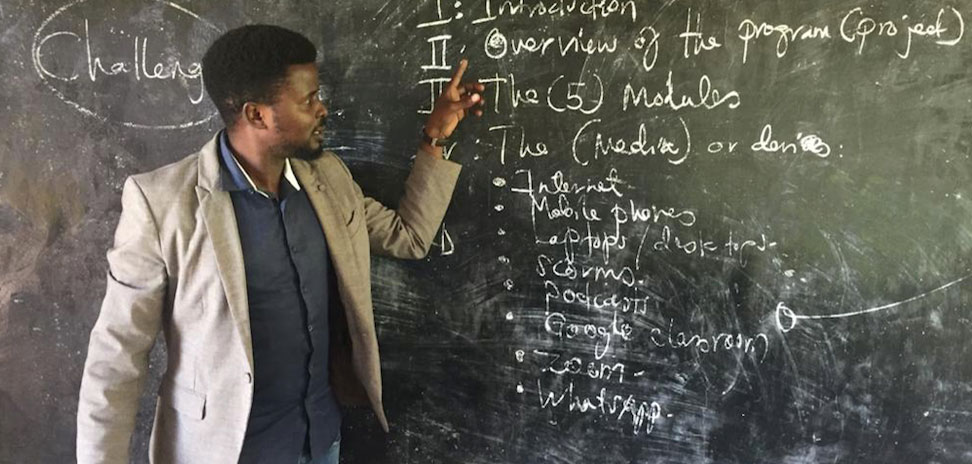 Challeng
I: Introduction
II: Overview of the program (project)
The (5) Modules
: The (Media) or
• Internet
• Mobile phones
• Laptops / desktops-
• Scorms.
• Podcasts
• Google classroom
• Zoom -
• WhatsApp.